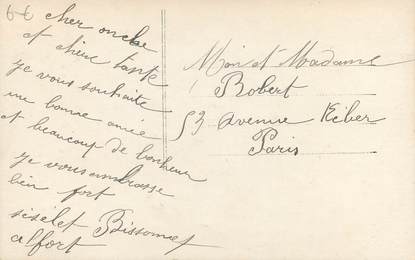 6€
cher oncle
et chère tante
je vous souhaite
une bonne anneé
et beaucoup de bonheur
je vous embrasse
bien fort
Bissonnet
alfort
Mon et Madame
Robert
53 avenue Kléber
Paris